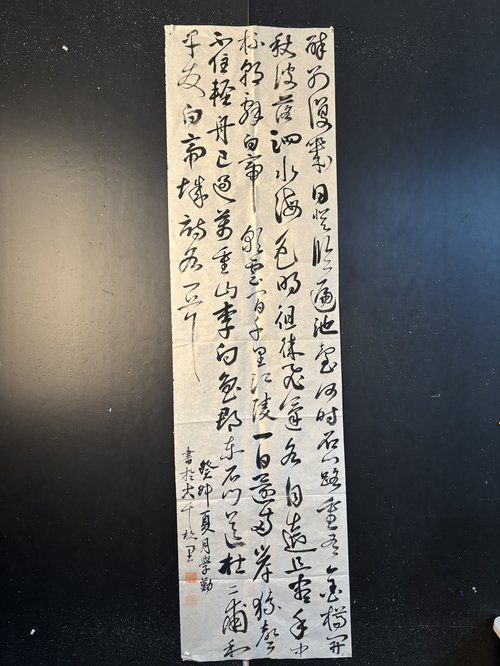 醉別復幾日登臨遍池臺何時石門路重有金樽開
秋波落泗水海色明徂徠飛蓬各自遠且盡手中
杯朝辭白帝彩雲間千里江陵一日還兩岸猿聲
不住輕舟已過萬重山李白魯郡東石門送杜二甫和
早發白帝城詩各一首
癸卯夏月學勤
書於大千故里